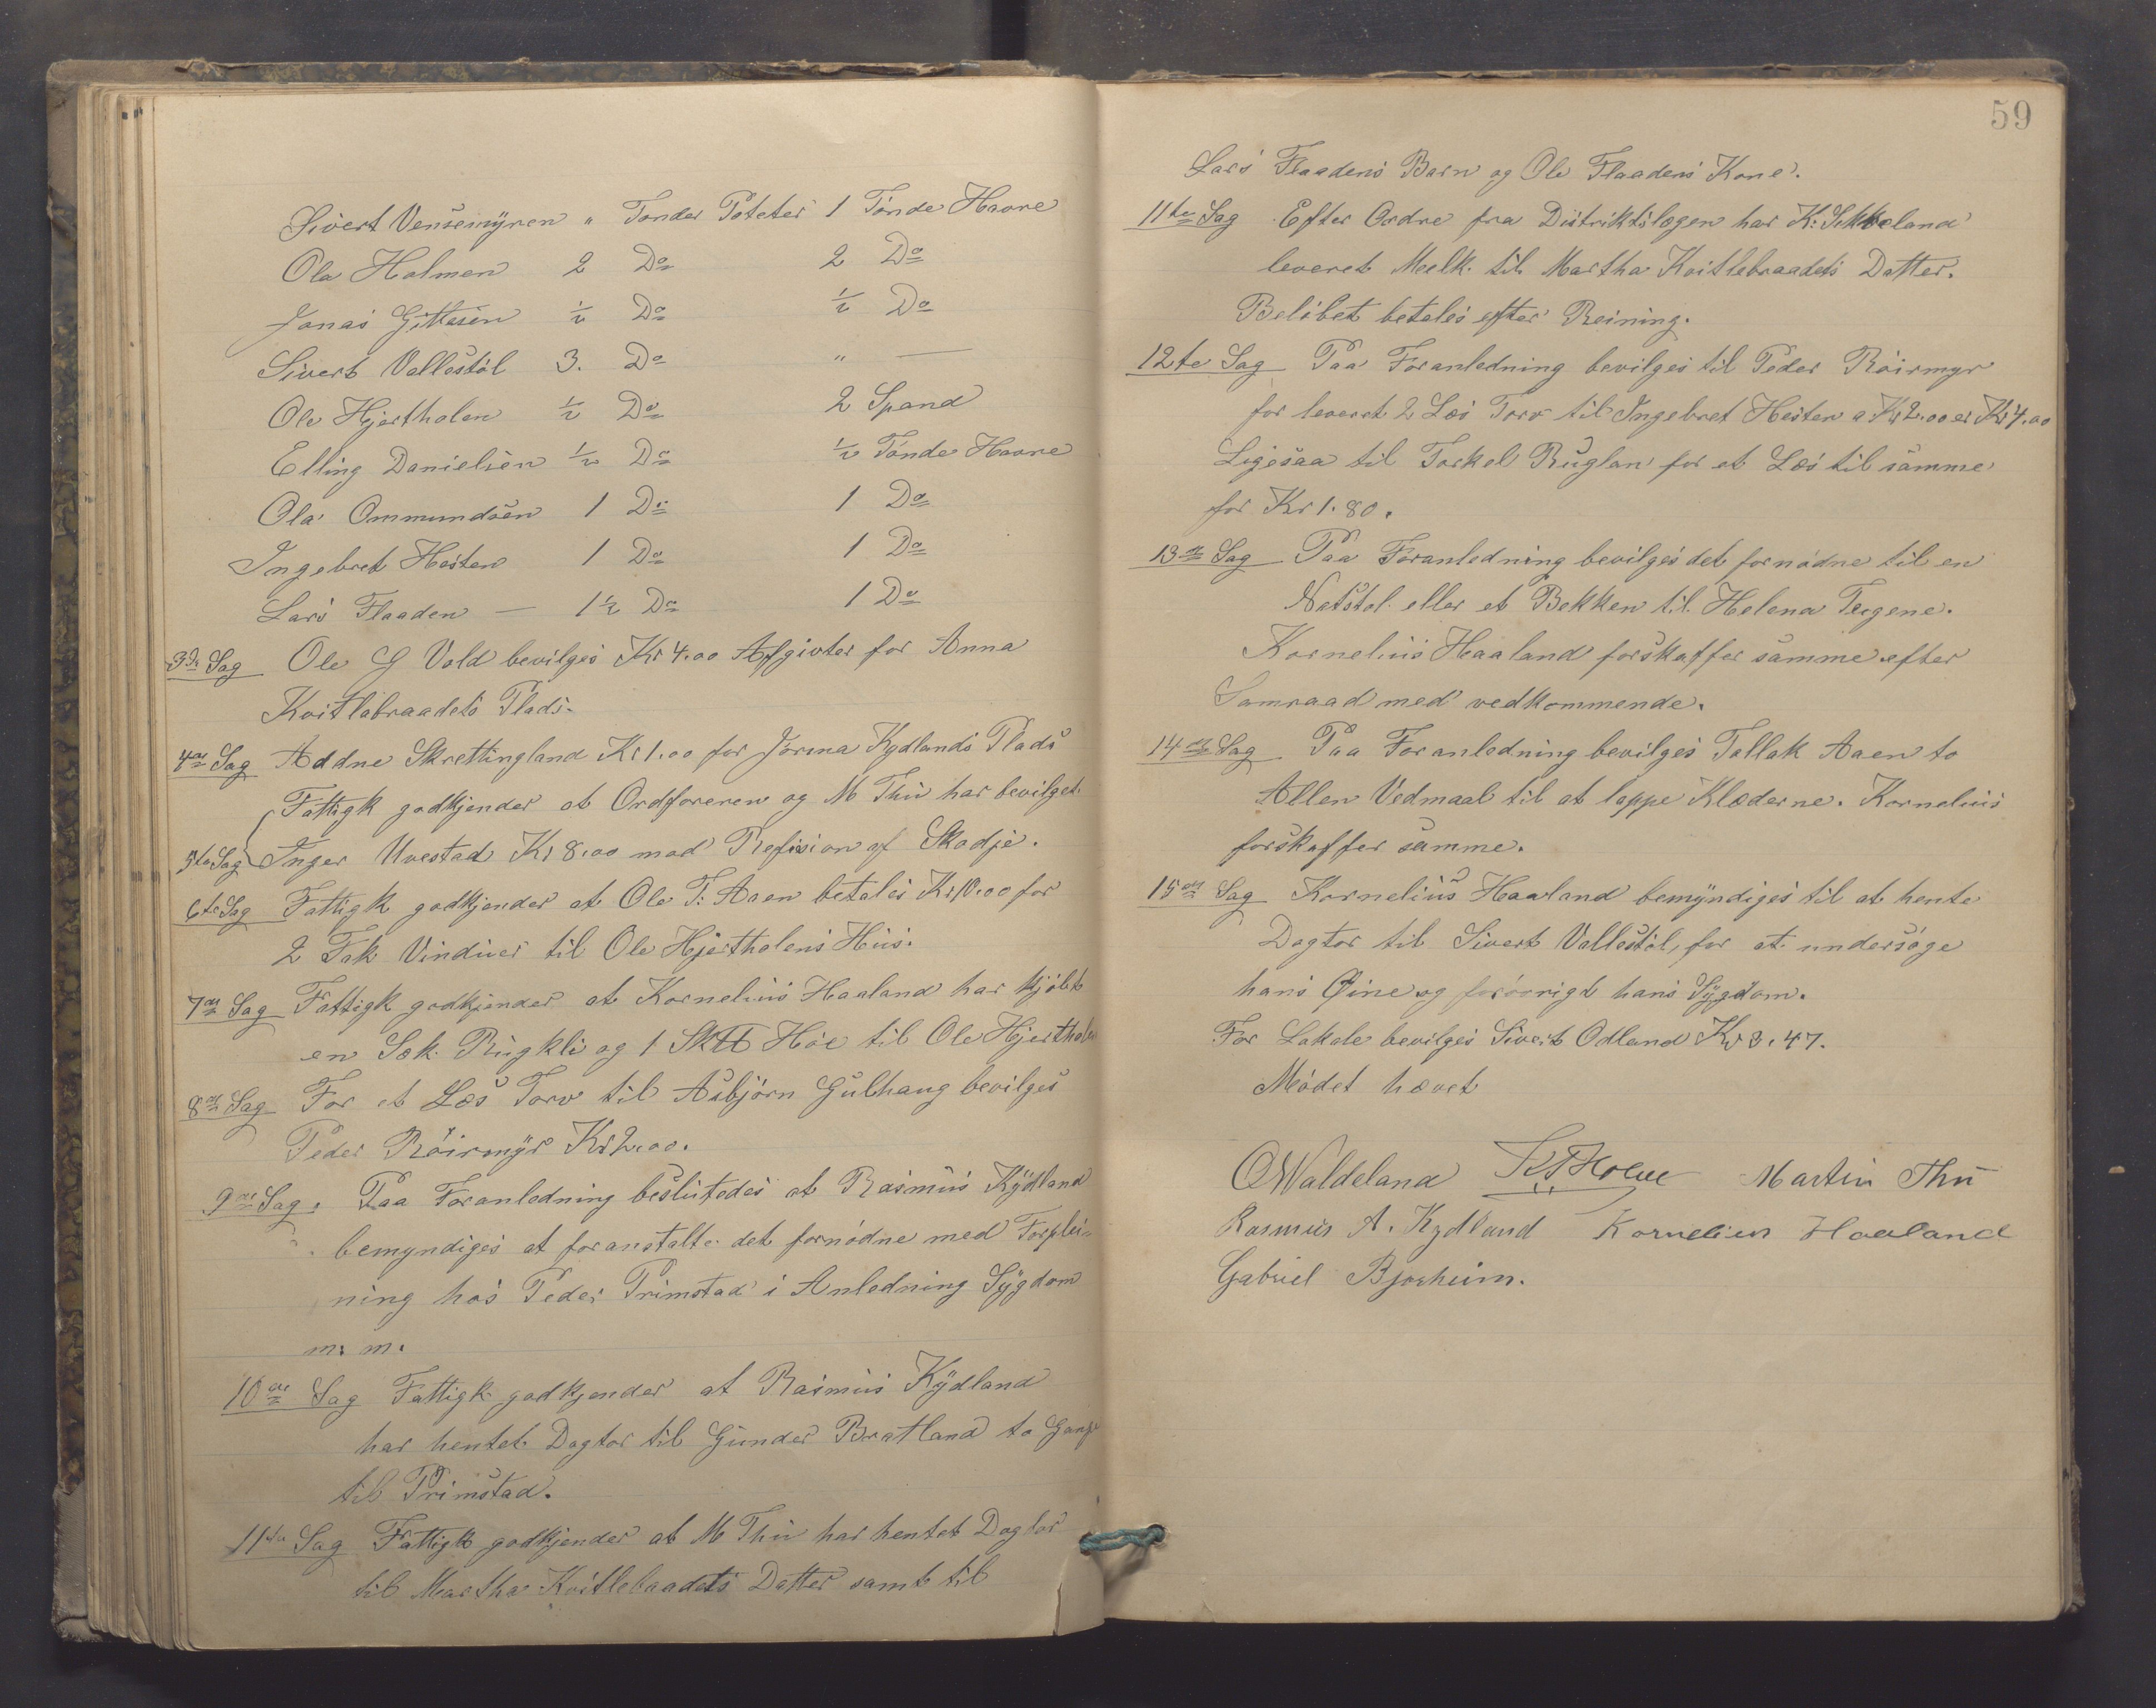 Sivert Vensemyren " Tønder Poteter 1 Tønde Havre
Ola Holmen 2 Do 2 Do
Jonas Gittesen ½ Do ½ Do
Sivert Vallestøl 3. Do " —
Ole Hjertholen ½ Do 2 Spand
Elling Danielsen ½ Do ½ Tønde Havre
Ola Ommundsen 1 Do 1 Do
Ingebret Hesten 1 Do 1 Do
Lars Flaaden — 1½ Do 1 Do
3de Sag Ole G Vold bevilges Kr 4.00 Afgivter for Anna
Kvitlabraadets Plads.
4de Sag Addne Skrettingland Kr 1.00 for Jørina Kydlands Plads
Fattigk godkjender at Ordføreren og M Thu har bevilget
5te Sag Inger Uvestad Kr 8.00 mod Refision af Skadje.
6te Sag Fattigk godkjender at Ole T. Aaen betales Kr 10.00 for
2 Fak Vinduer til Ole Hjertholens Hus.
7de Sag Fattigk godkjender at Kornelius Haaland har kjøbt
en Sæk Rugkli og 1 Sk℔ Høe til Ole Hjertholen
8de Sag For et Læs Torv til Asbjørn Gulhaug bevilges
Peder Røirmyr Kr 2.00.
9de Sag. Paa Foranledning beslutedes at Rasmus Kydland
bemyndiges at foranstalte det fornødne med Forplei-
ning hos Peder Primstad i Anledning Sygdom
m. m.
10de Sag Fattigk godkjender at Rasmus Kydland
har hentet Dogtor til Gunder Bratland to Gange
til Primstad.
11te Sag Fattigk godkjender at M Thu har hentet Dogtor
til Martha Kvitlebaadets Datter samt til
59
Lars Flaadens Barn og Ole Flaadens Kone.
11te Sag Efter Ordre fra Distriktslægen har K. Sikveland
leveret Meelk til Martha Kvitlebraadets Datter.
Beløbet betales efter Reining.
12te Sag Paa Foranledning bevilges til Peder Røirmyr
for leveret 2 Læs Torv til Ingebret Hesten a Kr 2.00 er Kr 4.00
Ligesaa til Torkel Ruglan for et Læs til samme
for Kr 1.80.
13de Sag Paa Foranledning bevilges det fornødne til en
Natstol eller et Bekken til Helena Tegene.
Kornelius Haaland forskaffer samme efter
Samraad med vedkommende.
14de Sag Paa Foranledning bevilges Tollak Aaen to
Allen Vedmaal til at lappe Klæderne. Kornelius
forskaffer samme.
15de Sag Kornelius Haaland bemyndiges til at hente
Dogtor til Sivert Vallestøl, for at undersøge
hans Øine og forøvrigt hans Sygdom.
For Lokale bevilges Sivert Odland Kr 3.47.
Mødet hævet
O Waldeland Martin Thu
Rasmus A. Kydland Kornelius Haaland
Gabriel Bjorheim.